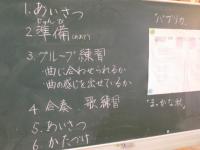 1. あいさつ
じゅんび
2. 準備
3. グループ練習
・曲に合わせられるか
・曲の感じを出せているか
4. 合奏・歌練習
5. あいさつ
6. かたづけ
"パプリカ"
"まっかな秋"